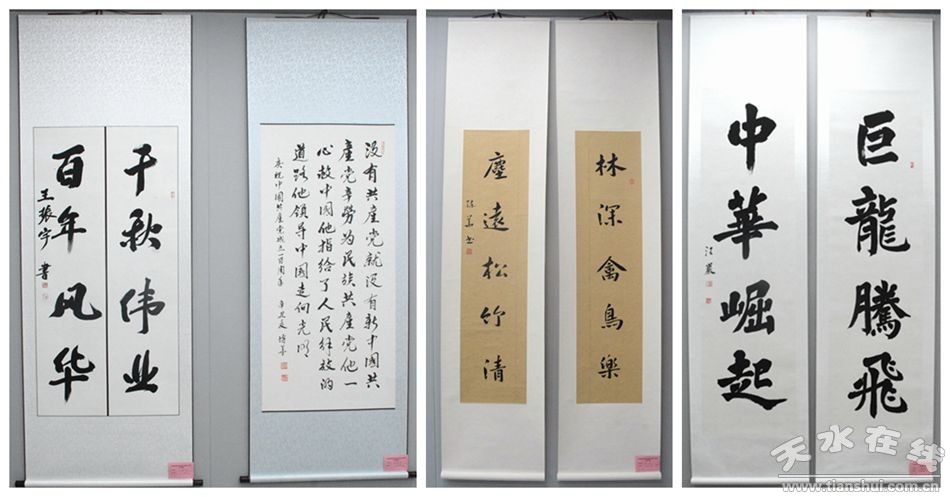 千秋伟业
百年风华
王振宇 书
没有共产党就没有新中国共
產党辛劳为民族共產党他一
心救中国他指给了人民解放的
道路他领导中國走向光明
庆祝中国共產党成立一百周年
林深禽鳥樂
塵遠松竹清
巨龍騰飛
中華崛起
汪巖
天水在线
www.tianshui.com.cn